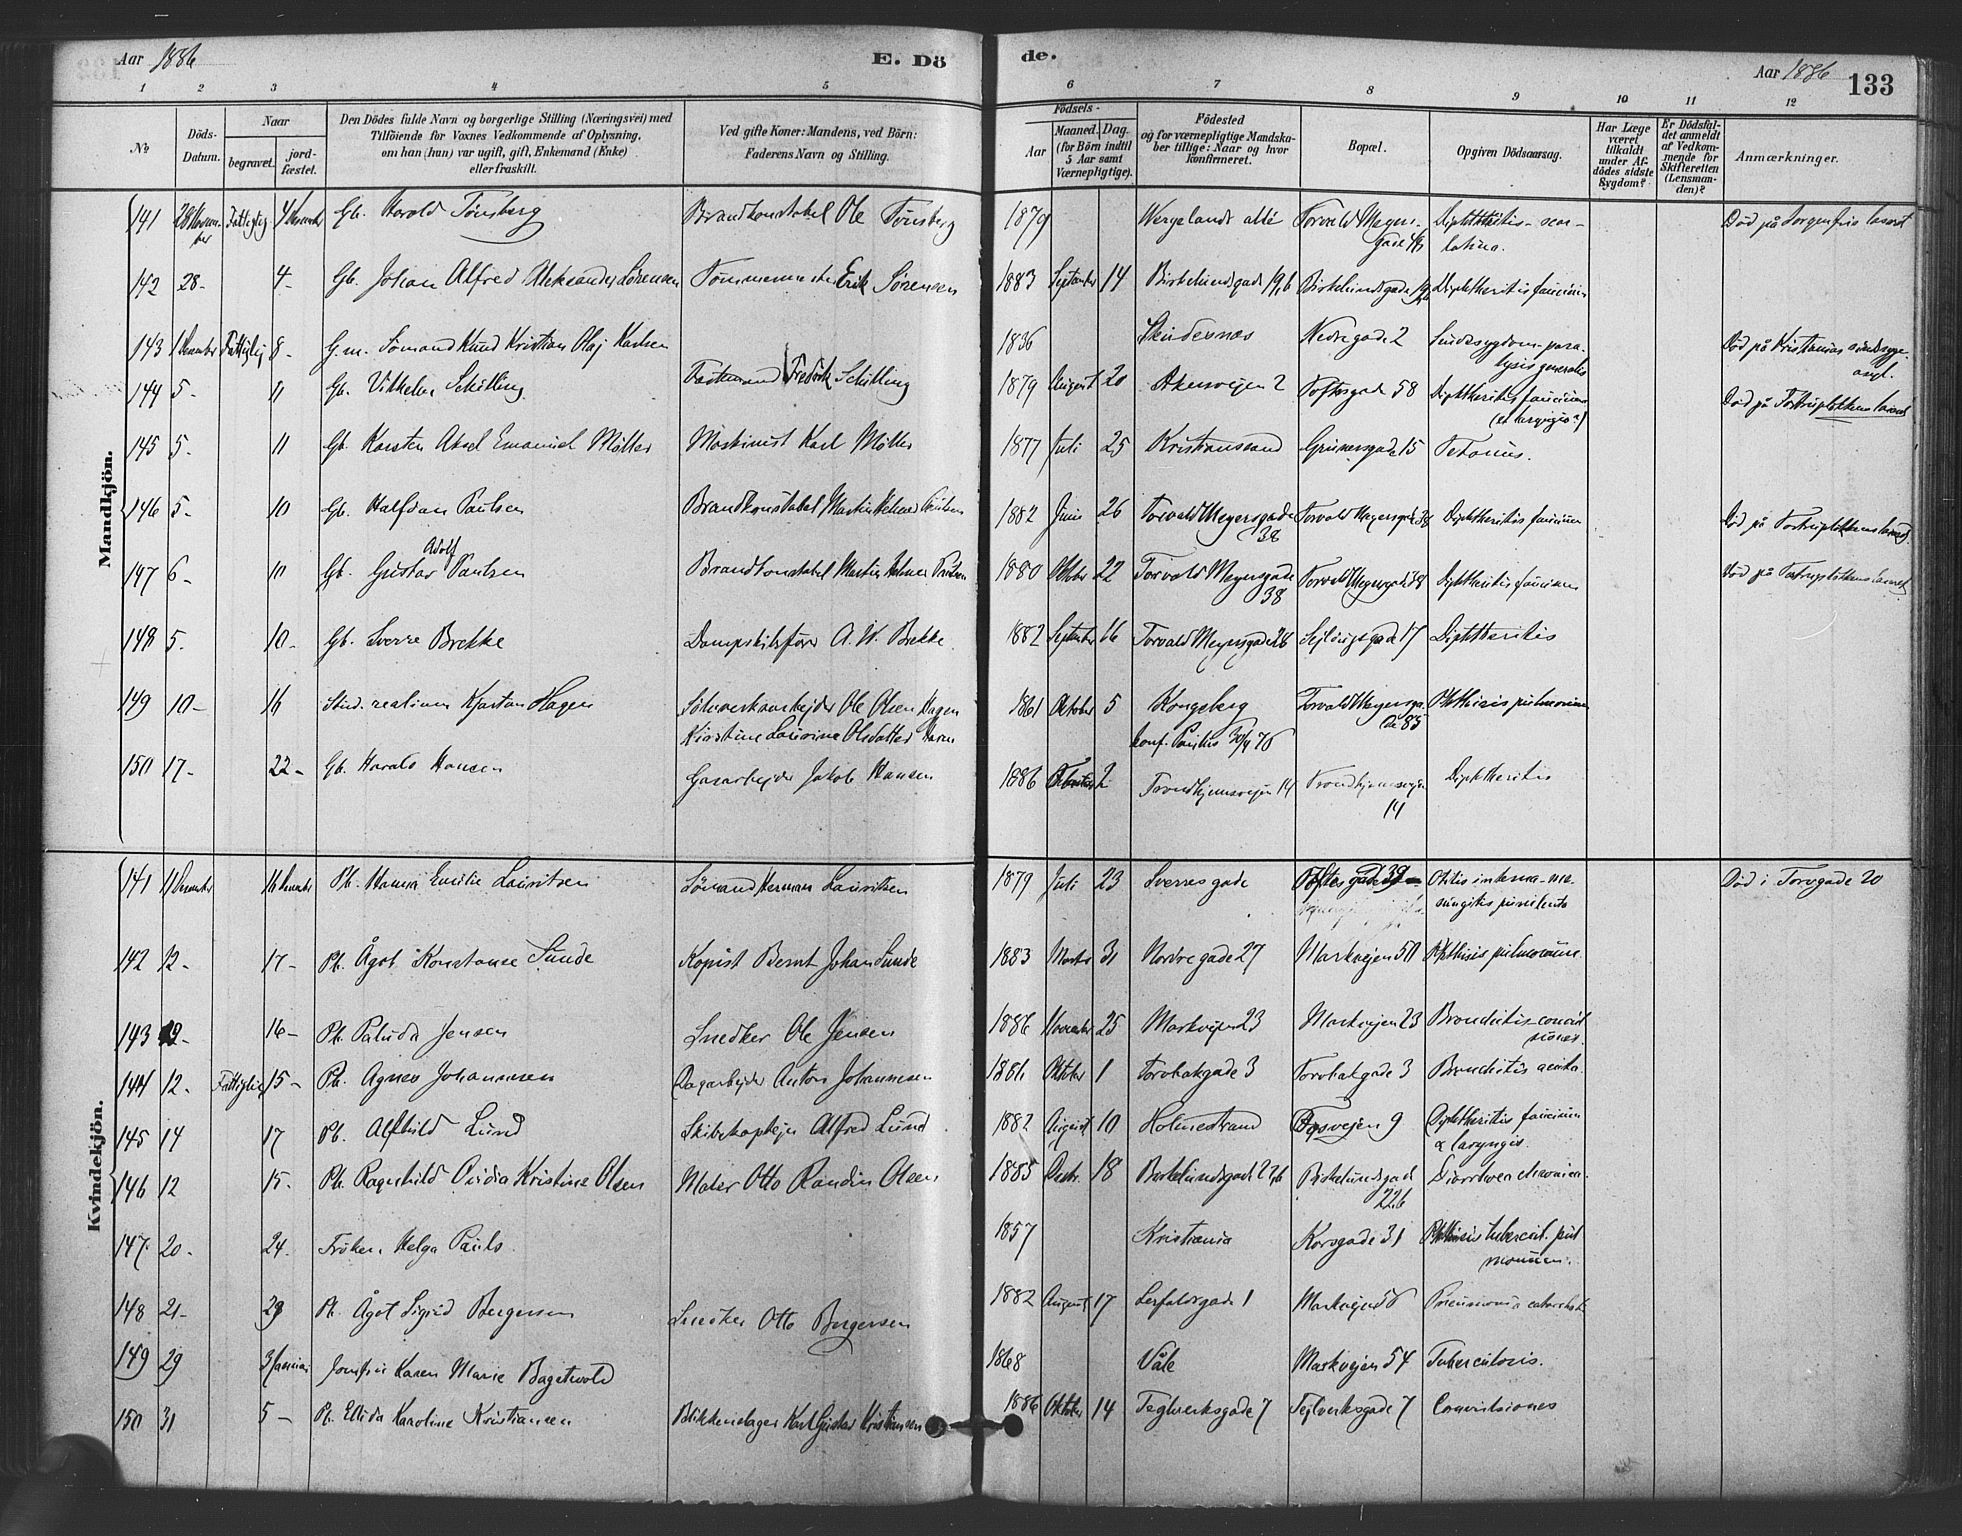 Aar 1886 E. Dö de. Aar 1886 133
1 2 3 4 5 6 7 8 9 10 11 12
№
Döds-Datum.
Naar
begravet.
jord-fæstet.
Den Dödes fulde Navn og borgerlige Stilling (Næringsvei) med
Tilföiende for Voxnes Vedkommende af Oplysning,
om han (hun) var ugift, gift, Enkemand (Enke)
eller fraskilt.
Ved gifte Koner: Mandens, ved Börn:
Faderens Navn og Stilling.
Födsels-
Aar
Maaned. Dag.
(for Börn indtil
5 Aar samt
Værnepligtige).
Födested
og for værnepligtige Mandska-
ber tillige: Naar og hvor
konfirmeret.
Bopæl.
Opgiven Dödsaarsag.
Har Læge
været
tilkaldt
under Af-
dödes sidste
Sygdom?
Er Dödsfal-
det anmeldt
af Vedkom-
mende for
Skifteretten
(Lensman-
den)?
Anmærkninger.
Mandkjön.
141 28 Fattiglig 4 Gb. Harald Tønsberg Brandkonstabel Ole Tønsberg 1879 Wergelands allé Torvald Meyers- Diphtheritis - scar-
gade latina. Død på Sorgenfris lasaret
142 28- 4- Gb. Johan Alfred Aleksander Sørensen Tømmermester Erik Sørensen 1883 September 14 Birkelundsgade 19,b Birkelundsgade Diphtheritis faucium
143 1 December Fattiglig 8- G.m. Sømand Knud Kristian Olaj Karlsen 1836 Skudesnæs Nedregade 2 Sindssygdom - para-
lysis generalis Død på Kristianias sindssyge-
asyl.
144 5- 11 Gb. Vilhelm Schilling Fredrik Schilling 1879 August 20 Akersvejen 2 Toftesgade 58 Diphtheritis faucium
Død på lasaret
145 5- 11 Gb. Karsten Aksel Emanuel Møller Maskinist Karl Møller 1877 Juli 25 Kristianssand Grünersgade 15 Tetanus.
146 5- 10 Gb. Halfdan Paulsen Brandkonstabel Martin Paulsen 1882 Juni 26 Torvald Meyersgade Torvald Meyersgade 38 Diphtheritis faucium
38 Død på lasaret
147 6- 10 Gb. Gustav Adolf Paulsen Brandkonstabel Martin Paulsen 1880 Oktober 22 Torvald Meyersgade Torvald Meyersgade 38 Diphtheritis faucium Død på lasaret
38
148 5. 10- Gb. Sverre Brekke Dampskibsfører A. W. Brekke. 1882 September 16 Torvald Meyersgade 28 gade 17 Diphtheritis
149 10- 16 Stud. realium Kjartan Hagen Sølvverksarbejder Ole Olsen Hagen 1861 Oktober 5 Kongsberg Torvald Meyersga- Phthisis pulmonum
Kirstine Laurine Olsdatter konf. Paulus de 85
150 17- 22- Gb. Harald Hansen Gasarbejder Jakob Hansen 1886 2 Trondhjemsvejen 14 Trondhjemsvejen Diphtheritis
14
Kvindekjön.
141 11 December 16 December Pb. Hanna Emilie Lauritsen Sømand Herman Lauritsen 1879 Juli 23 Sverres gade Toftes gade 39 Otitis interna - me-
ningitis purulenta Død i Torvgade 20
142 12- 17- Pb. Ågot Konstanse Sunde Kopist Bernt Johan Sunde 1883 Marts 31 Nordregade 27 Markvejen 50 Phthisis pulmonum.
143 16- Pb. Jensen Snedker Ole Jensen 1886 November 25 Markvejen 23 Markvejen 23 Bronchitis - convul-
siones.
144 12- Fattiglig 15- Pb. Agnes Johannesen Dagarbejder Anton Johannesen 1886 Oktober 1 Torvbakgade 3 Torvbakgade 3 Bronchitis acuta.
145 14 17 Pb. Alfhild Lund Skibskaptejn Alfred Lund 1882 August 10 Holmestrand 9 Diphtheritis faucium
& laryngis.
146 12 15- Pb. Ragnhild Ovidia Kristine Olsen Maler Otto Randin Olsen 1885 Decbr. 18 Birkelundsgade 22,b Birkelundsgade Diarrhoea chronica.
22b
147. 20- 24- Frøken Helga Pauls 1857 Kristiania Korsgade 31 Phthisis tubercul. pul-
monum.
148 21- 29 Pb. Ågot Sigrid Bergersen Snedker Otto Bergersen 1882 August 17 Lerfaldsgade 1 Markvejen 56 Pneumonia catarrhal.
149 29 3 Januar Jomfru Karen Marie Bagstvold 1868 Våle Markvejen 54 Tuberculosis.
150 31 5- Pb. Ellida Karoline Kristiansen Blikkenslager Karl Gustav Kristiansen 1886 Oktober 14 Teglverksgade 7 Teglverksgade 7 Convulsiones